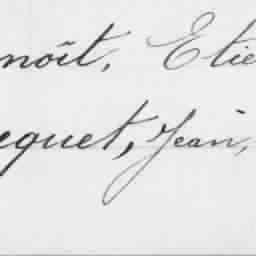 noît, Etie
equet, Jean,